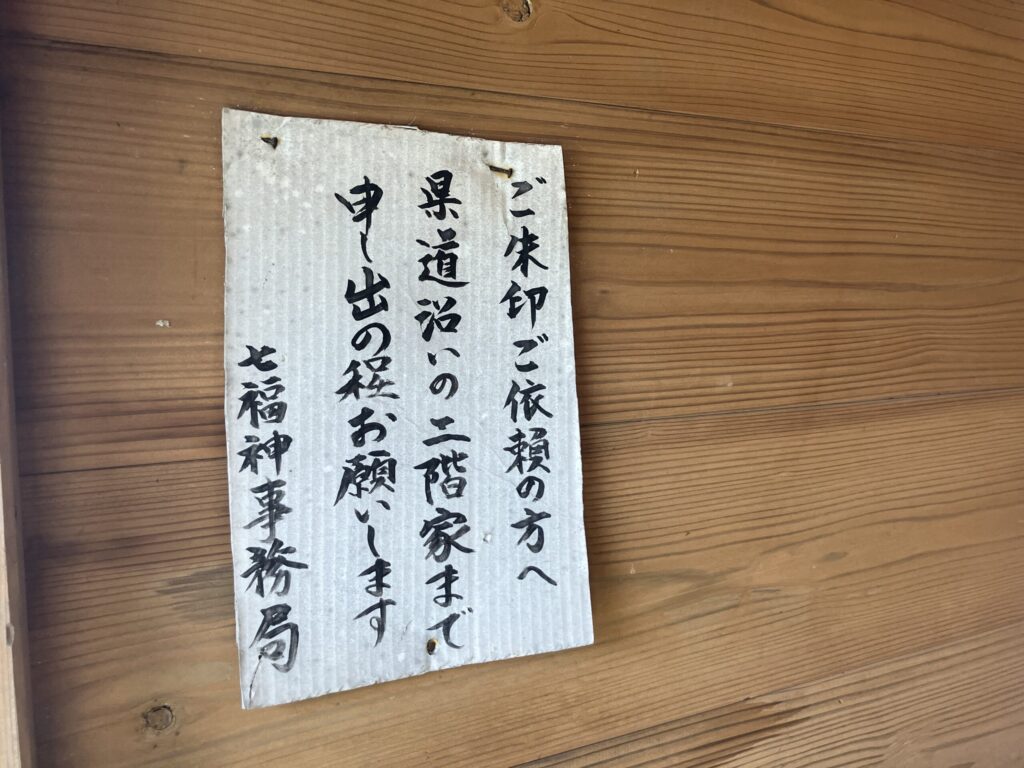 ご朱印ご依頼の方へ
県道沿いの二階家まで
申し出の程お願いします
七福神事務局